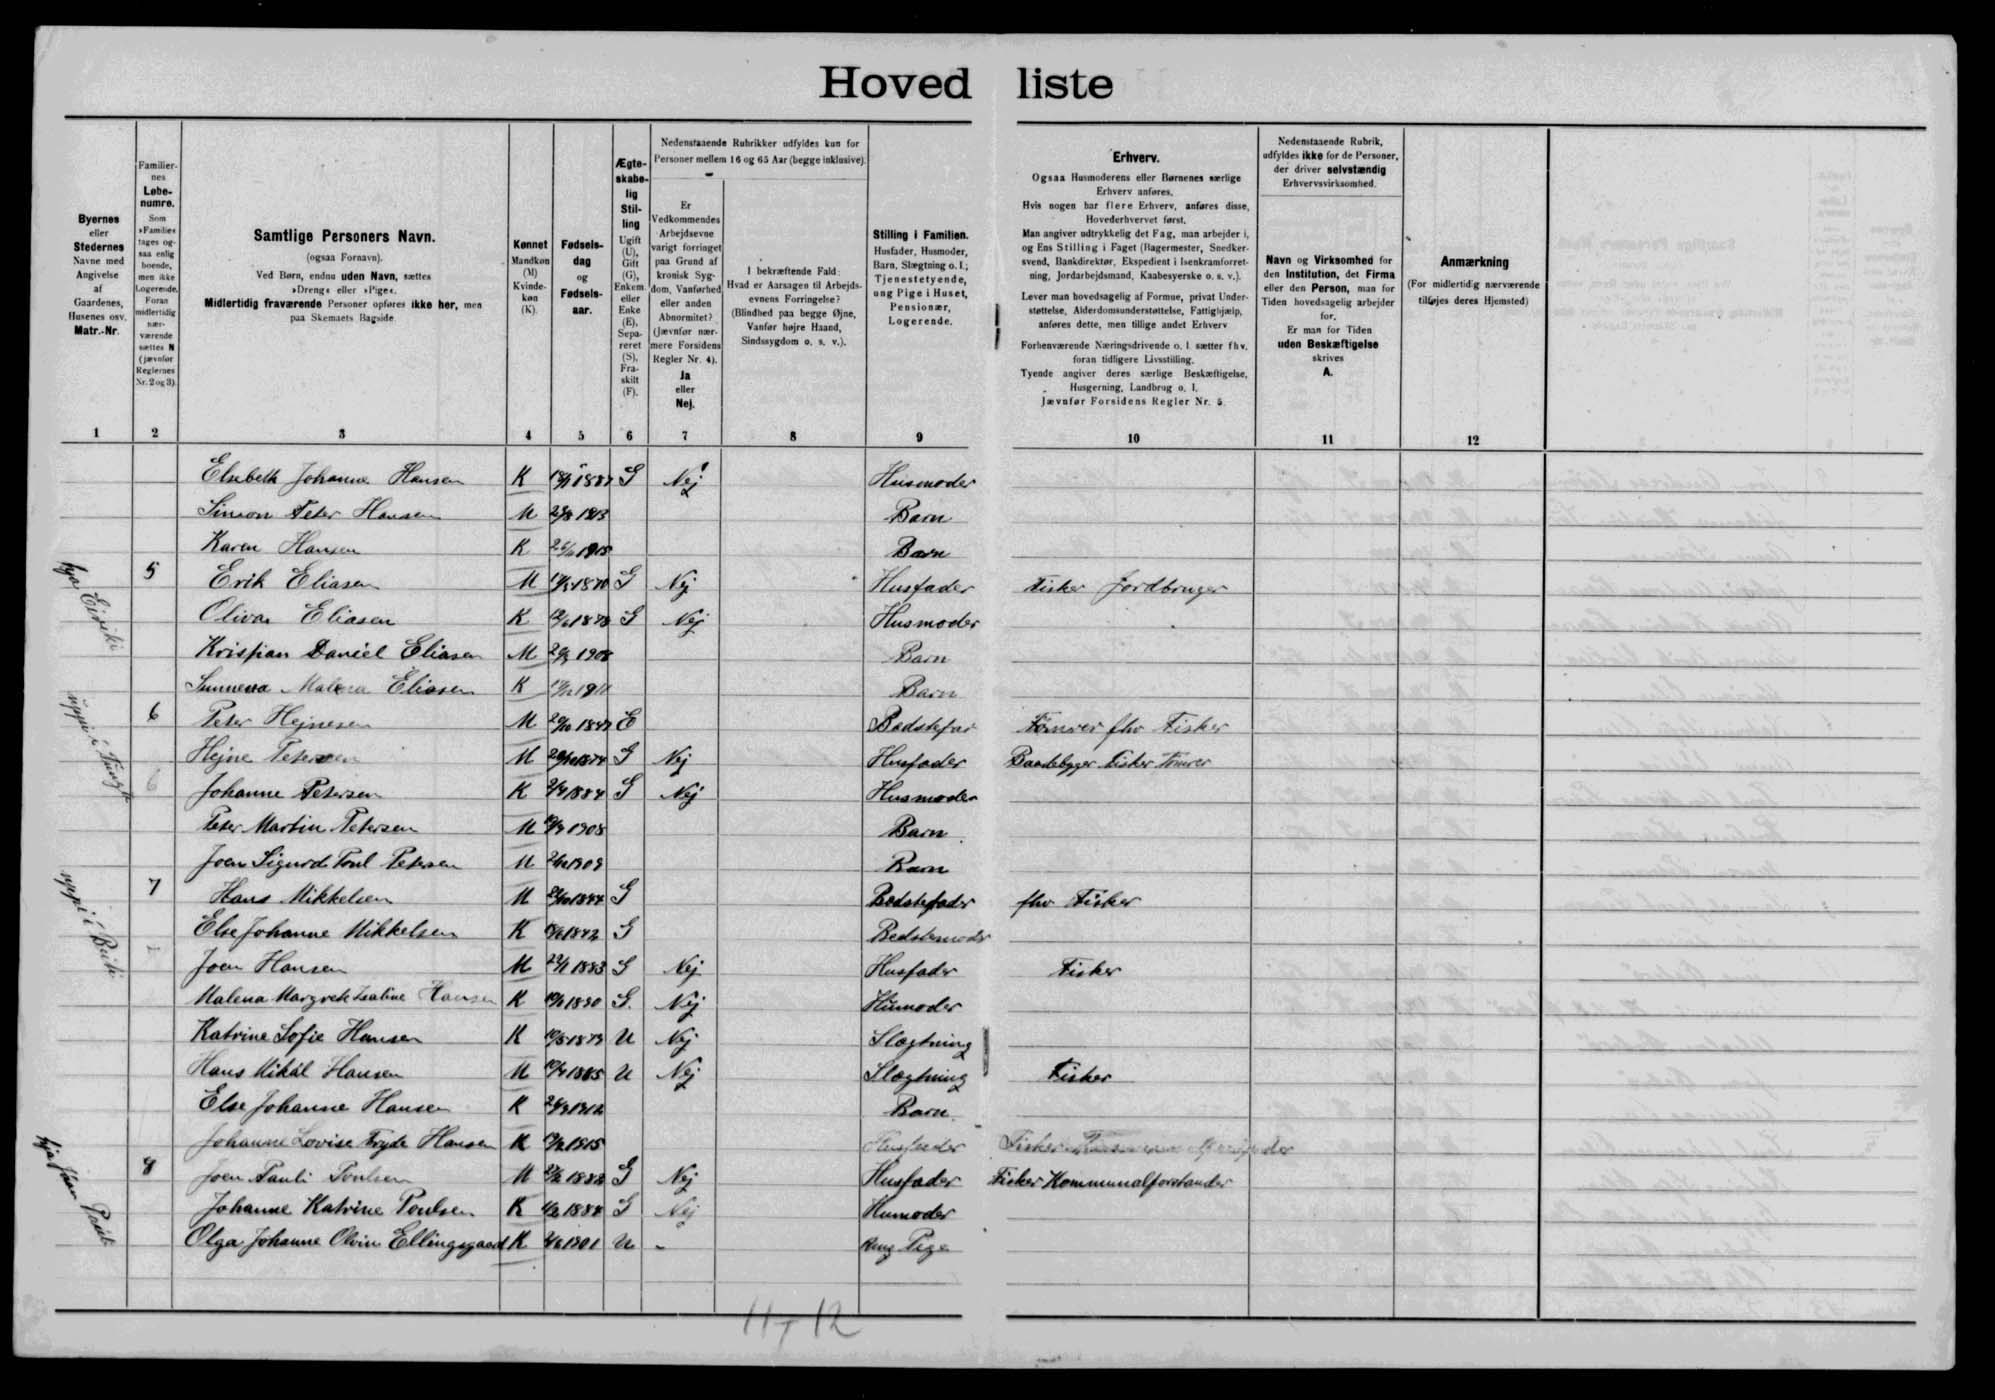 Hoved liste
Byernes
eller
Stedernes
Navne med
Angivelse
af
Gaardenes,
Husenes osv.
Matr.-Nr.
Familier-
nes
Løbe-
numre.
Som
»Familie«
tages og-
saa enlig
boende,
men ikke
Logerende.
Foran
midlertidig
nær-
værende
sættes N
(jævnfør
Reglernes
Nr. 2 og 3).
Samtlige Personers Navn.
(ogsaa Fornavn).
Ved Børn, endnu uden Navn, sættes
»Dreng« eller »Pige«.
Midlertidig fraværende Personer opføres ikke her, men
paa Skemaets Bagside.
Kønnet
Mandkøn
(M)
Kvinde-
køn
(K).
Fødsels-
dag
og
Fødsels-
aar.
Ægte-
skabe-
lig
Stil-
ling
Ugift
(U),
Gift
(G),
Enkem.
eller
Enke
(E),
Sepa-
reret
(S),
Fra-
skilt
(F).
Nedenstaaende Rubrikker udfyldes kun for
Personer mellem 16 og 65 Aar (begge inklusive).
Er
Vedkommendes
Arbejdsevne
varigt forringet
paa Grund af
kronisk Syg-
dom, Vanførhed
eller anden
Abnormitet?
(Jævnfør nær-
mere Forsidens
Regler Nr. 4).
Ja
eller
Nej.
I bekræftende Fald:
Hvad er Aarsagen til Arbejds-
evnens Forringelse?
(Blindhed paa begge Øjne,
Vanfør højre Haand,
Sindssygdom o. s. v.).
Stilling i Familien.
Husfader, Husmoder,
Barn, Slægtning o. l.;
Tjenestetyende,
ung Pige i Huset,
Pensionær,
Logerende.
Erhverv.
Ogsaa Husmoderens eller Børnenes særlige
Erhverv anføres.
Hvis nogen har flere Erhverv, anføres disse,
Hovederhvervet først.
Man angiver udtrykkelig det Fag, man arbejder i,
og Ens Stilling i Faget (Bagermester, Snedker-
svend, Bankdirektør, Ekspedient i Isenkramforret-
ning, Jordarbejdsmand, Kaabesyerske o. s. v.).
Lever man hovedsagelig af Formue, privat Under-
støttelse, Alderdomsunderstøttelse, Fattighjælp,
anføres dette, men tillige andet Erhverv
Forhenværende Næringsdrivende o. l. sætter fhv.
foran tidligere Livsstilling.
Tyende angiver deres særlige Beskæftigelse,
Husgerning, Landbrug o. l.
Jævnfør Forsidens Regler Nr. 5.
Nedenstaaende Rubrik,
udfyldes ikke for de Personer,
der driver selvstændig
Erhvervsvirksomhed.
Navn og Virksomhed for
den Institution, det Firma
eller den Person, man for
Tiden hovedsagelig arbejder
for.
Er man for Tiden
uden Beskæftigelse
skrives
A.
Anmærkning
(For midlertidig nærværende
tilføjes deres Hjemsted)
1 2 3 4 5 6 7 8 9 10 11 12
Elsebeth Johanne Hansen K G Nej Husmoder
Simon Peter Hansen M 1913 Barn
Karen Hansen K 1915 Barn
hja Eiriki
5 Erik Eliasen M G Nej Husfader Fisker Jordbruger
Olivas Eliasen K G Nej Husmoder
Kristian Daniel Eliasen M 1908 Barn
Sunneva Malena Eliasen K 1911 Barn
uppi i
6 Peter Hejnesen M E Bedstefar Tømrer fhv Fisker
Hejne Petersen M 1874 G Nej Husfader Baadebygger Fisker Tømrer
6 Johanne Petersen K 1884 G Nej Husmoder
Peter Martin Petersen M 1908 Barn
Joen Sigurd Poul Petersen M 1909 Barn
uppi i
7 Hans Mikkelsen M 1844 G Bedstefader fhv Fisker
Else Johanne Mikkelsen K 1842 G Bedstemoder
Joen Hansen M 1883 G Nej Husfader Fisker
Malena Margrete Hansen K 1890 G. Nej Husmoder
Katrine Sofie Hansen K 1879 U Nej Slægtning
Hans Mikal Hansen M 1885 U Nej Slægtning Fisker
Else Johanne Hansen K 1912 Barn
Johanne Lovise Hansen K 1915 Husfader Fisker
hja
8 Joen Pauli Poulsen M 1882 G Nej Husfader Fisker Kommunalforstander
Johanne Katrine Poulsen K 1884 G Nej Humoder
Olga Johanne Olvin Ellingsgaard K 1901 U - ung Pige
11 + 12